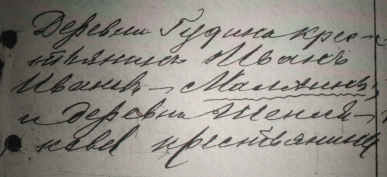 Деревни Гудина крес-
тьянинъ Иванъ
Ивановъ Малининъ
и деревни
крестьянинъ